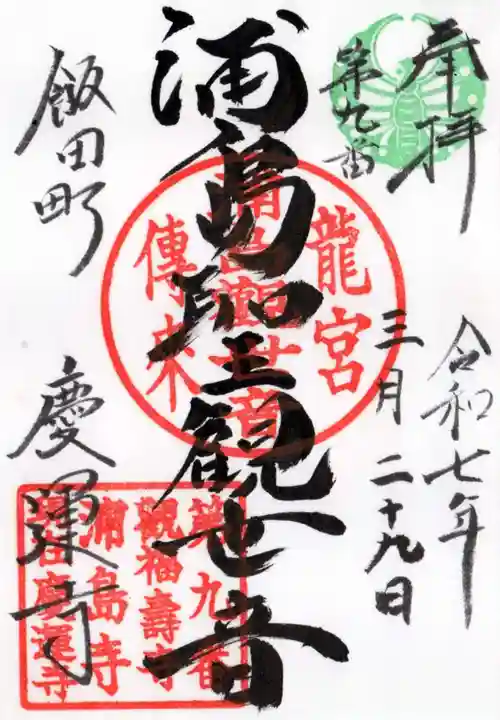 奉拝
第九番
令和七年
三月二十九日
浦島聖観世音
龍宮
浦島観世音
傳来
飯田町
慶運寺
第九番
觀福壽寺
浦島寺